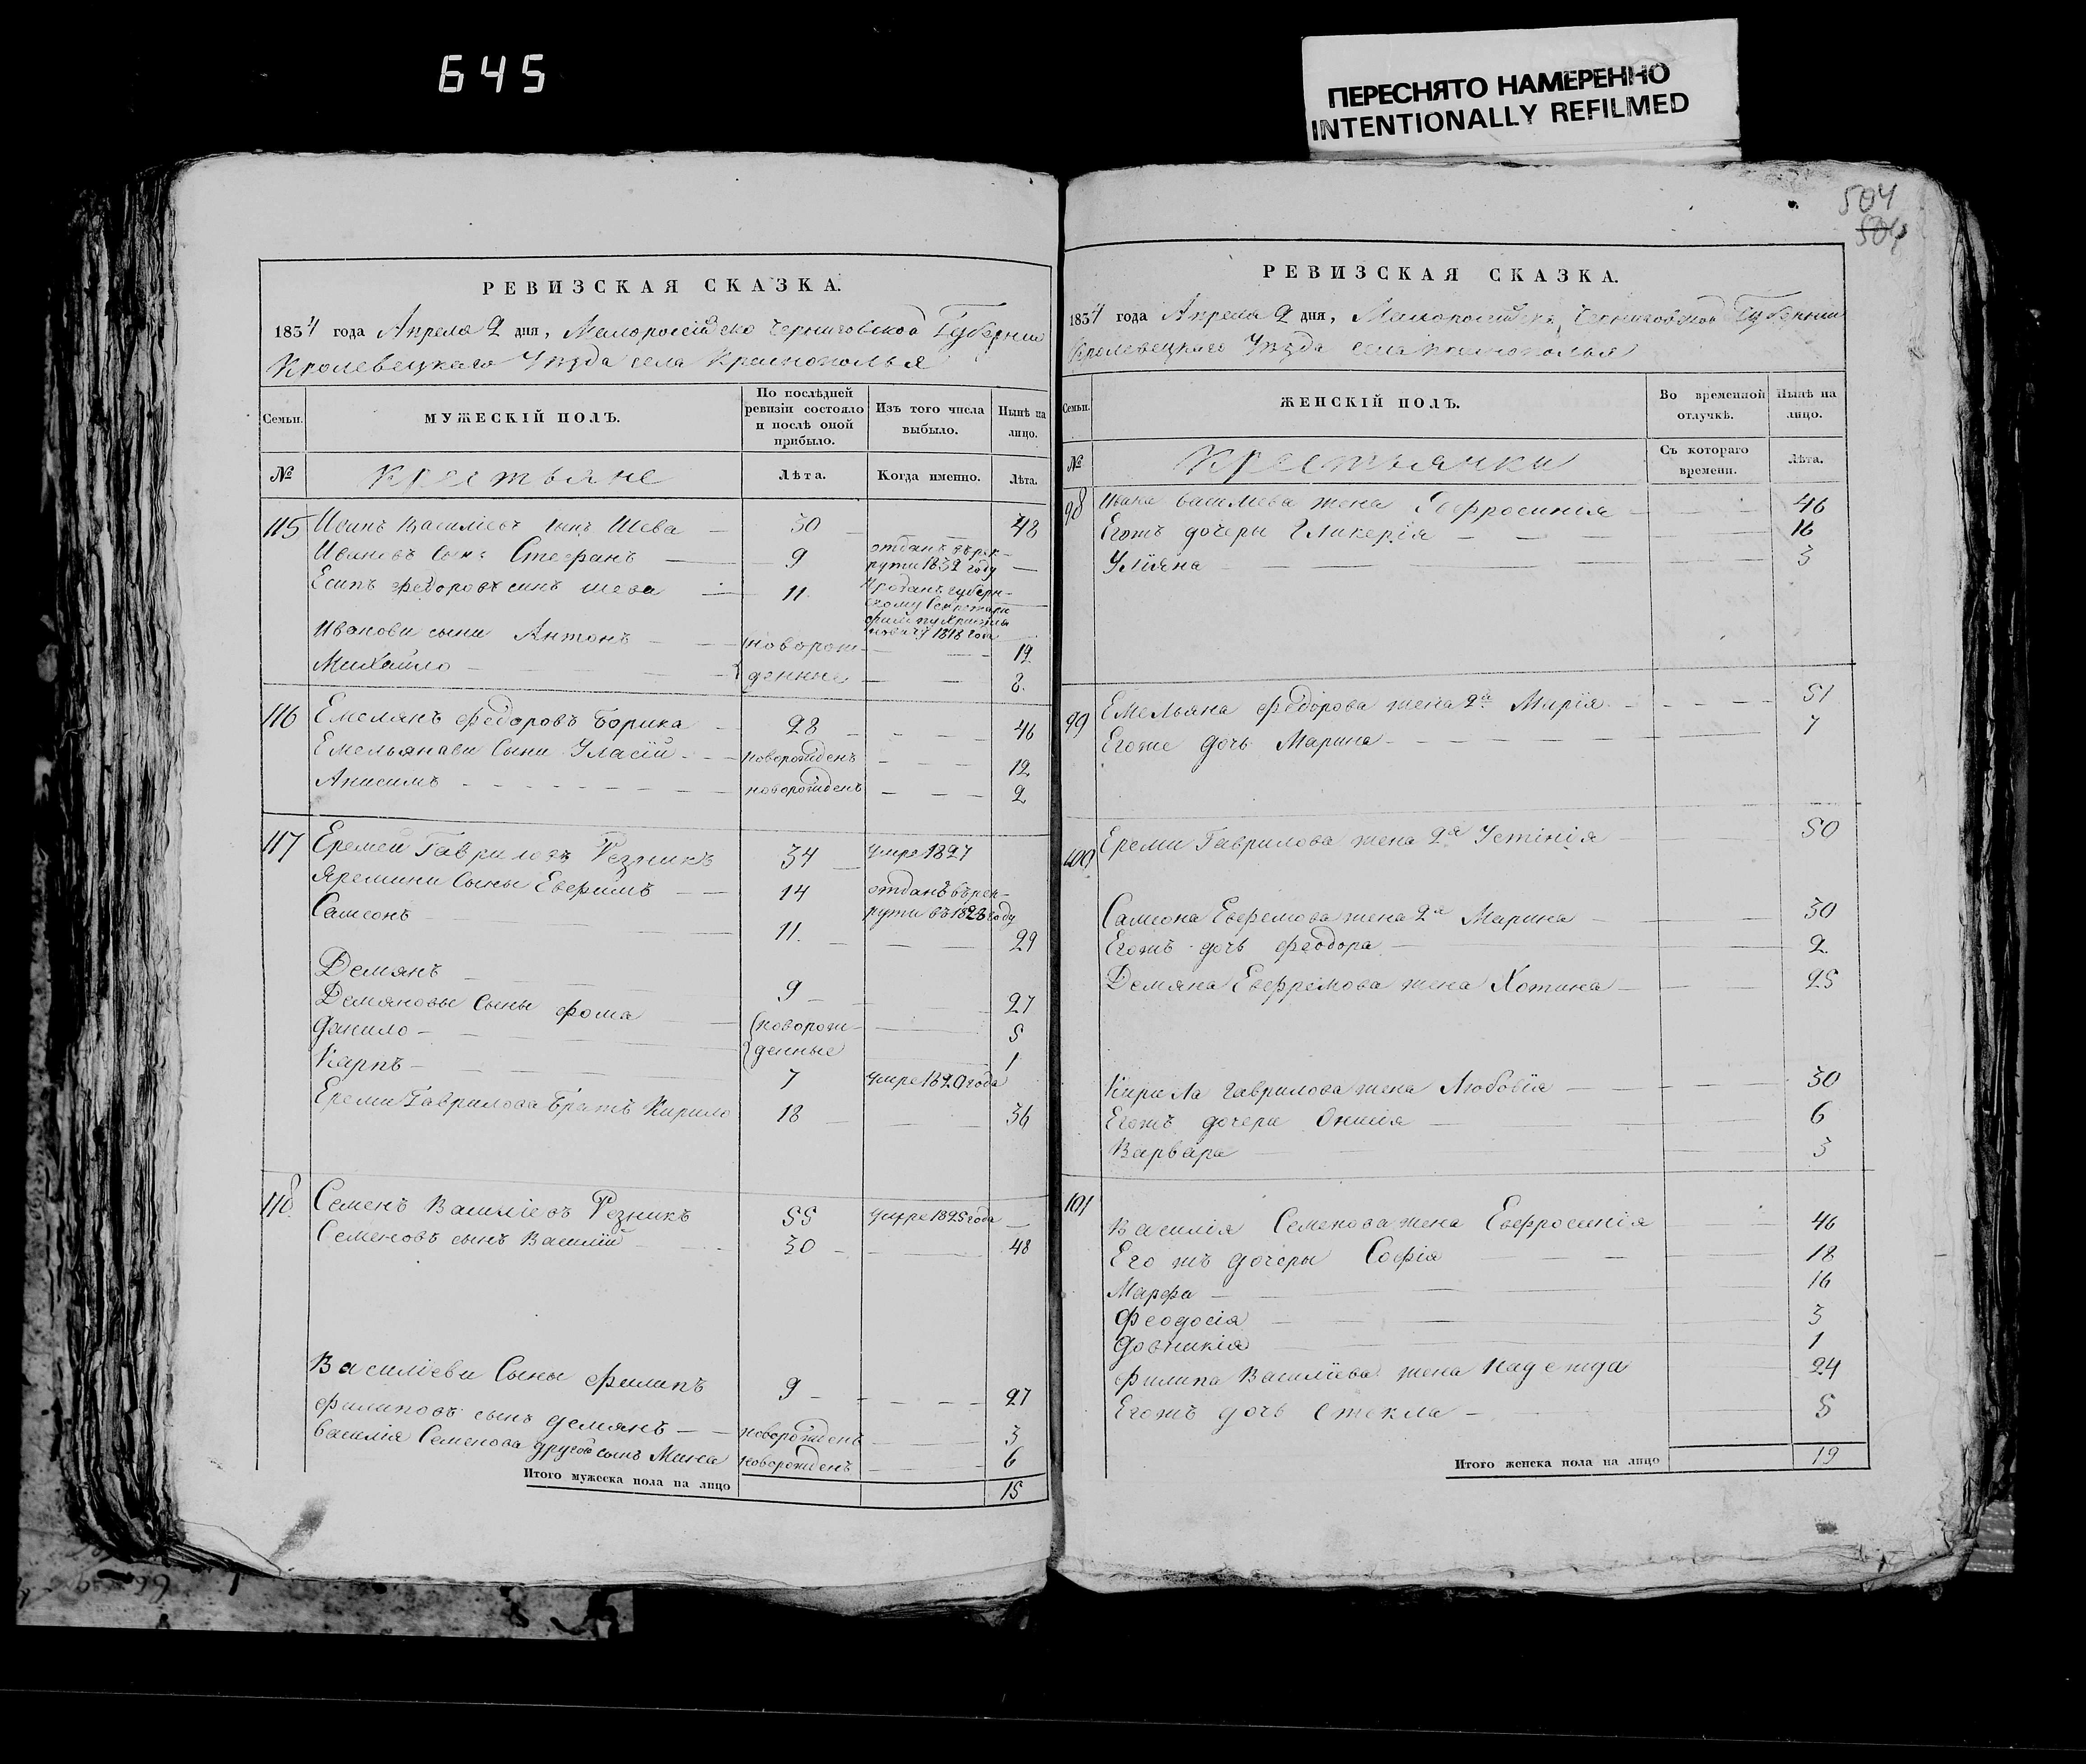 645
ПЕРЕСНЯТО НАМЕРЕННО
INTENTIONALLY REFILMED
504
504
РЕВИЗСКАЯ СКАЗКА.
1834 года Апреля 2 дня, Малороссійско Черниговской Губерніи
Кролевецкаго Уезда села Краснополья
Семьи.
МУЖЕСКІЙ ПОЛЪ.
По послѣдней ревизіи состояло и послѣ оной прибыло.
Изъ того числа выбыло.
Нынѣ на лицо.
№
Крестьяне
Лѣта.
Когда именно.
Лѣта.
115 Василіевъ сынъ Шева 30 48
Ивановъ сынъ Стефанъ 9 отданъ въ рек-
рути 1832 году
Есипъ Федоровъ синъ шева 11 Проданъ губерн-
скому Секретарю
1818 года
Иванови сыни Антонъ новорож- 19
Михайло денние 8
116 Емелянъ Федоровъ Борика 28 46
Емельянави Сыни Уласій новорожденъ 12
Анисимъ новорожденъ 2
117 Еремей Гавриловъ Резникъ 34 умре 1827
Яремини Сыны Евфимъ 14 отданъ въ рек-
рути въ 1823 году
Самсонъ 11 29
Демянъ 9 27
Демяновы Сыны Фома новорож- 5
Данило денные 1
Карпъ 7 умре 1820 года
Ереми Гаврилова братъ Кирило 18 36
118 Семенъ Василіевъ Резникъ 55 умре 1825 года
Семеновъ сынъ Василій 30 48
Василіеви Сыны Филипъ 9 27
Филиповъ сынъ Демянъ новорожденъ 3
Василія Семенова другой сынъ Мина новорожденъ 6
Итого мужеска пола на лицо 15
РЕВИЗСКАЯ СКАЗКА.
1834 года Апреля 2 дня, Малороссійско Черниговской Губерніи
Кролевецкаго Уезда села Краснополья
Семьи.
ЖЕНСКІЙ ПОЛЪ.
Во временной отлучкѣ.
Нынѣ на лицо.
№
Крестьянки
Съ котораго времени.
Лѣта.
98 Ивана Василиева жена Ефросинія 46
Егожъ дочеры Гликерія 16
Уліяна 3
99 Емельяна Федорова жена 2я Марія 51
Егоже дочь Марина 7
100 Ереми Гаврилова жена 2я Устінія 50
Самсона Евфремова жена 2я Марина 30
Егожъ дочь Феодора 2
Демяна Евфремова жена Хотина 25
Кирила Гаврилова жена Любовія 30
Егожъ дочери 6
Варвара 3
101
Василія Семенова жена Евфросинія 46
Его жъ дочеры Софія 18
Марфа 16
Феодосія 3
Довникія 1
Филипа Василіева жена Надежда 24
Егожъ дочь Стекла 5
Итого женска пола на лицо 19